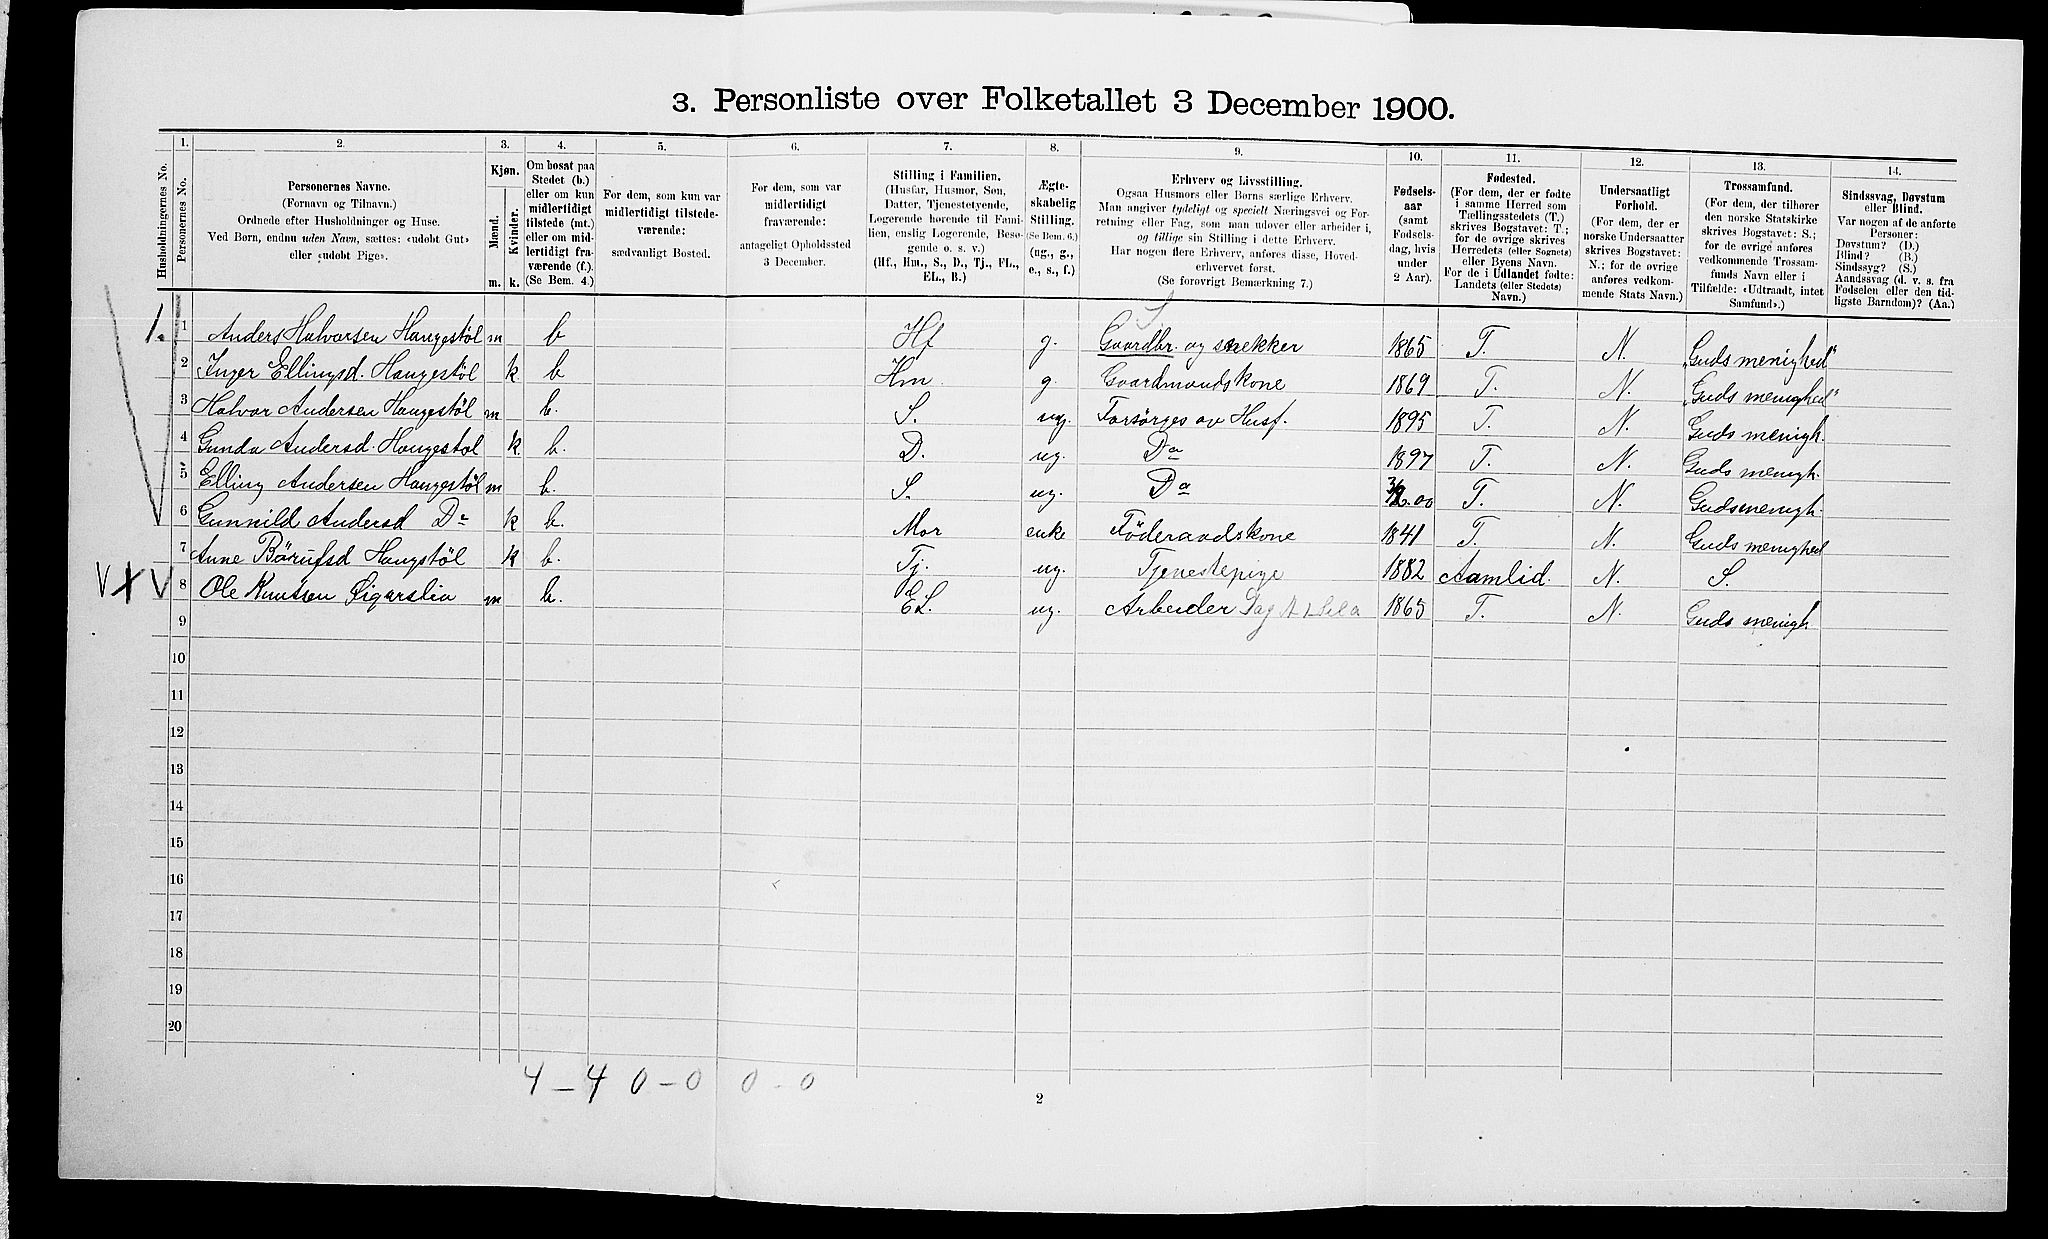 3. Personliste over Folketallet 3 December 1900.
Husholdningernes No.
1. Personernes No.
2. Personernes Navne.
(Fornavn og Tilnavn.)
Ordnede efter Husholdninger og Huse.
Ved Børn, endnu uden Navn, sættes: «udøbt Gut»
eller «udøbt Pige».
3. Kjøn.
Mænd. Kvinder.
m. k.
4. Om bosat paa
Stedet (b.)
eller om kun
midlertidigt
tilstede (mt.)
eller om mid-
lertidigt fra-
værende (f.).
(Se Bem. 4.)
5. For dem, som kun var
midlertidigt tilstede-
værende:
sædvanligt Bosted.
6. For dem, som var
midlertidigt
fraværende:
antageligt Opholdssted
3 December.
7. Stilling i Familien.
(Husfar, Husmor, Søn,
Datter, Tjenestetyende,
Logerende hørende til Fami-
lien, enslig Logerende, Besø-
gende o. s. v.)
(Hf., Hm., S., D., Tj., FL.,
EL., B.)
8. Ægte-
skabelig
Stilling.
(Se Bem. 6.)
(ug., g.,
e., s., f.)
9. Erhverv og Livsstilling.
Ogsaa Husmors eller Børns særlige Erhverv.
Man angiver tydeligt og specielt Næringsvei og For-
retning eller Fag, som man udøver eller arbeider i,
og tillige sin Stilling i dette Erhverv.
Har nogen flere Erhverv, anføres disse, Hoved-
erhvervet først.
(Se forøvrigt Bemærkning 7.)
10. Fødsels-
aar
(samt
Fødsels-
dag, hvis
under
2 Aar).
11. Fødested.
(For dem, der er fødte
i samme Herred som
Tællingsstedets (T.)
skrives Bogstavet: T.;
for de øvrige skrives
Herredets (eller Sognets)
eller Byens Navn.
For de i Udlandet fødte:
Landets (eller Stedets)
Navn.)
12. Undersaatligt
Forhold.
(For dem, der er
norske Undersaatter
skrives Bogstavet:
N.; for de øvrige
anføres vedkom-
mende Stats Navn.)
13. Trossamfund.
(For dem, der tilhører
den norske Statskirke
skrives Bogstavet: S.;
for de øvrige anføres
vedkommende Trossam-
funds Navn eller i
Tilfælde: «Udtraadt, intet
Samfund».)
14. Sindssvag, Døvstum
eller Blind.
Var nogen af de anførte
Personer:
Døvstum? (D.)
Blind? (B.)
Sindssyg? (S.)
Aandssvag (d. v. s. fra
Fødselen eller den tid-
ligste Barndom)? (Aa.)
1. 1 Anders Halvorsen Haugestöl m b Hf g. Gaardbr. og snekker 1865 T. N. "Guds menighed"
2 Inger Ellingsd. Haugestöl k. b Hm. g. Gaardmandskone 1869 T. N. "Guds menighed"
3 Halvor Andersen Haugestöl m b. S. ug. Forsörges av Husf. 1895 T. N. Guds menigh.
4 Gunda Andersd. Haugestöl k. b. D. ug. Do 1897 T. N. Guds menigh.
5 Elling Andersen Haugestöl m b. S. ug. Do .00 T. N. Gudsmenigh.
6 Gunnild Andersd Do k b. Mor enke Föderaadskone 1841 T. N. Guds menighed
7 Anne Haugstöl k b. Tj. ug. Tjenestepige 1882 Aamlid. N. S.
8 Ole Knutsen m b. EL. ug. Arbeider 1865 T. N. Guds menigh
9
10
11
12
13
14
15
16
17
18
19
20
4 – 4 0 – 0 0 – 0
2